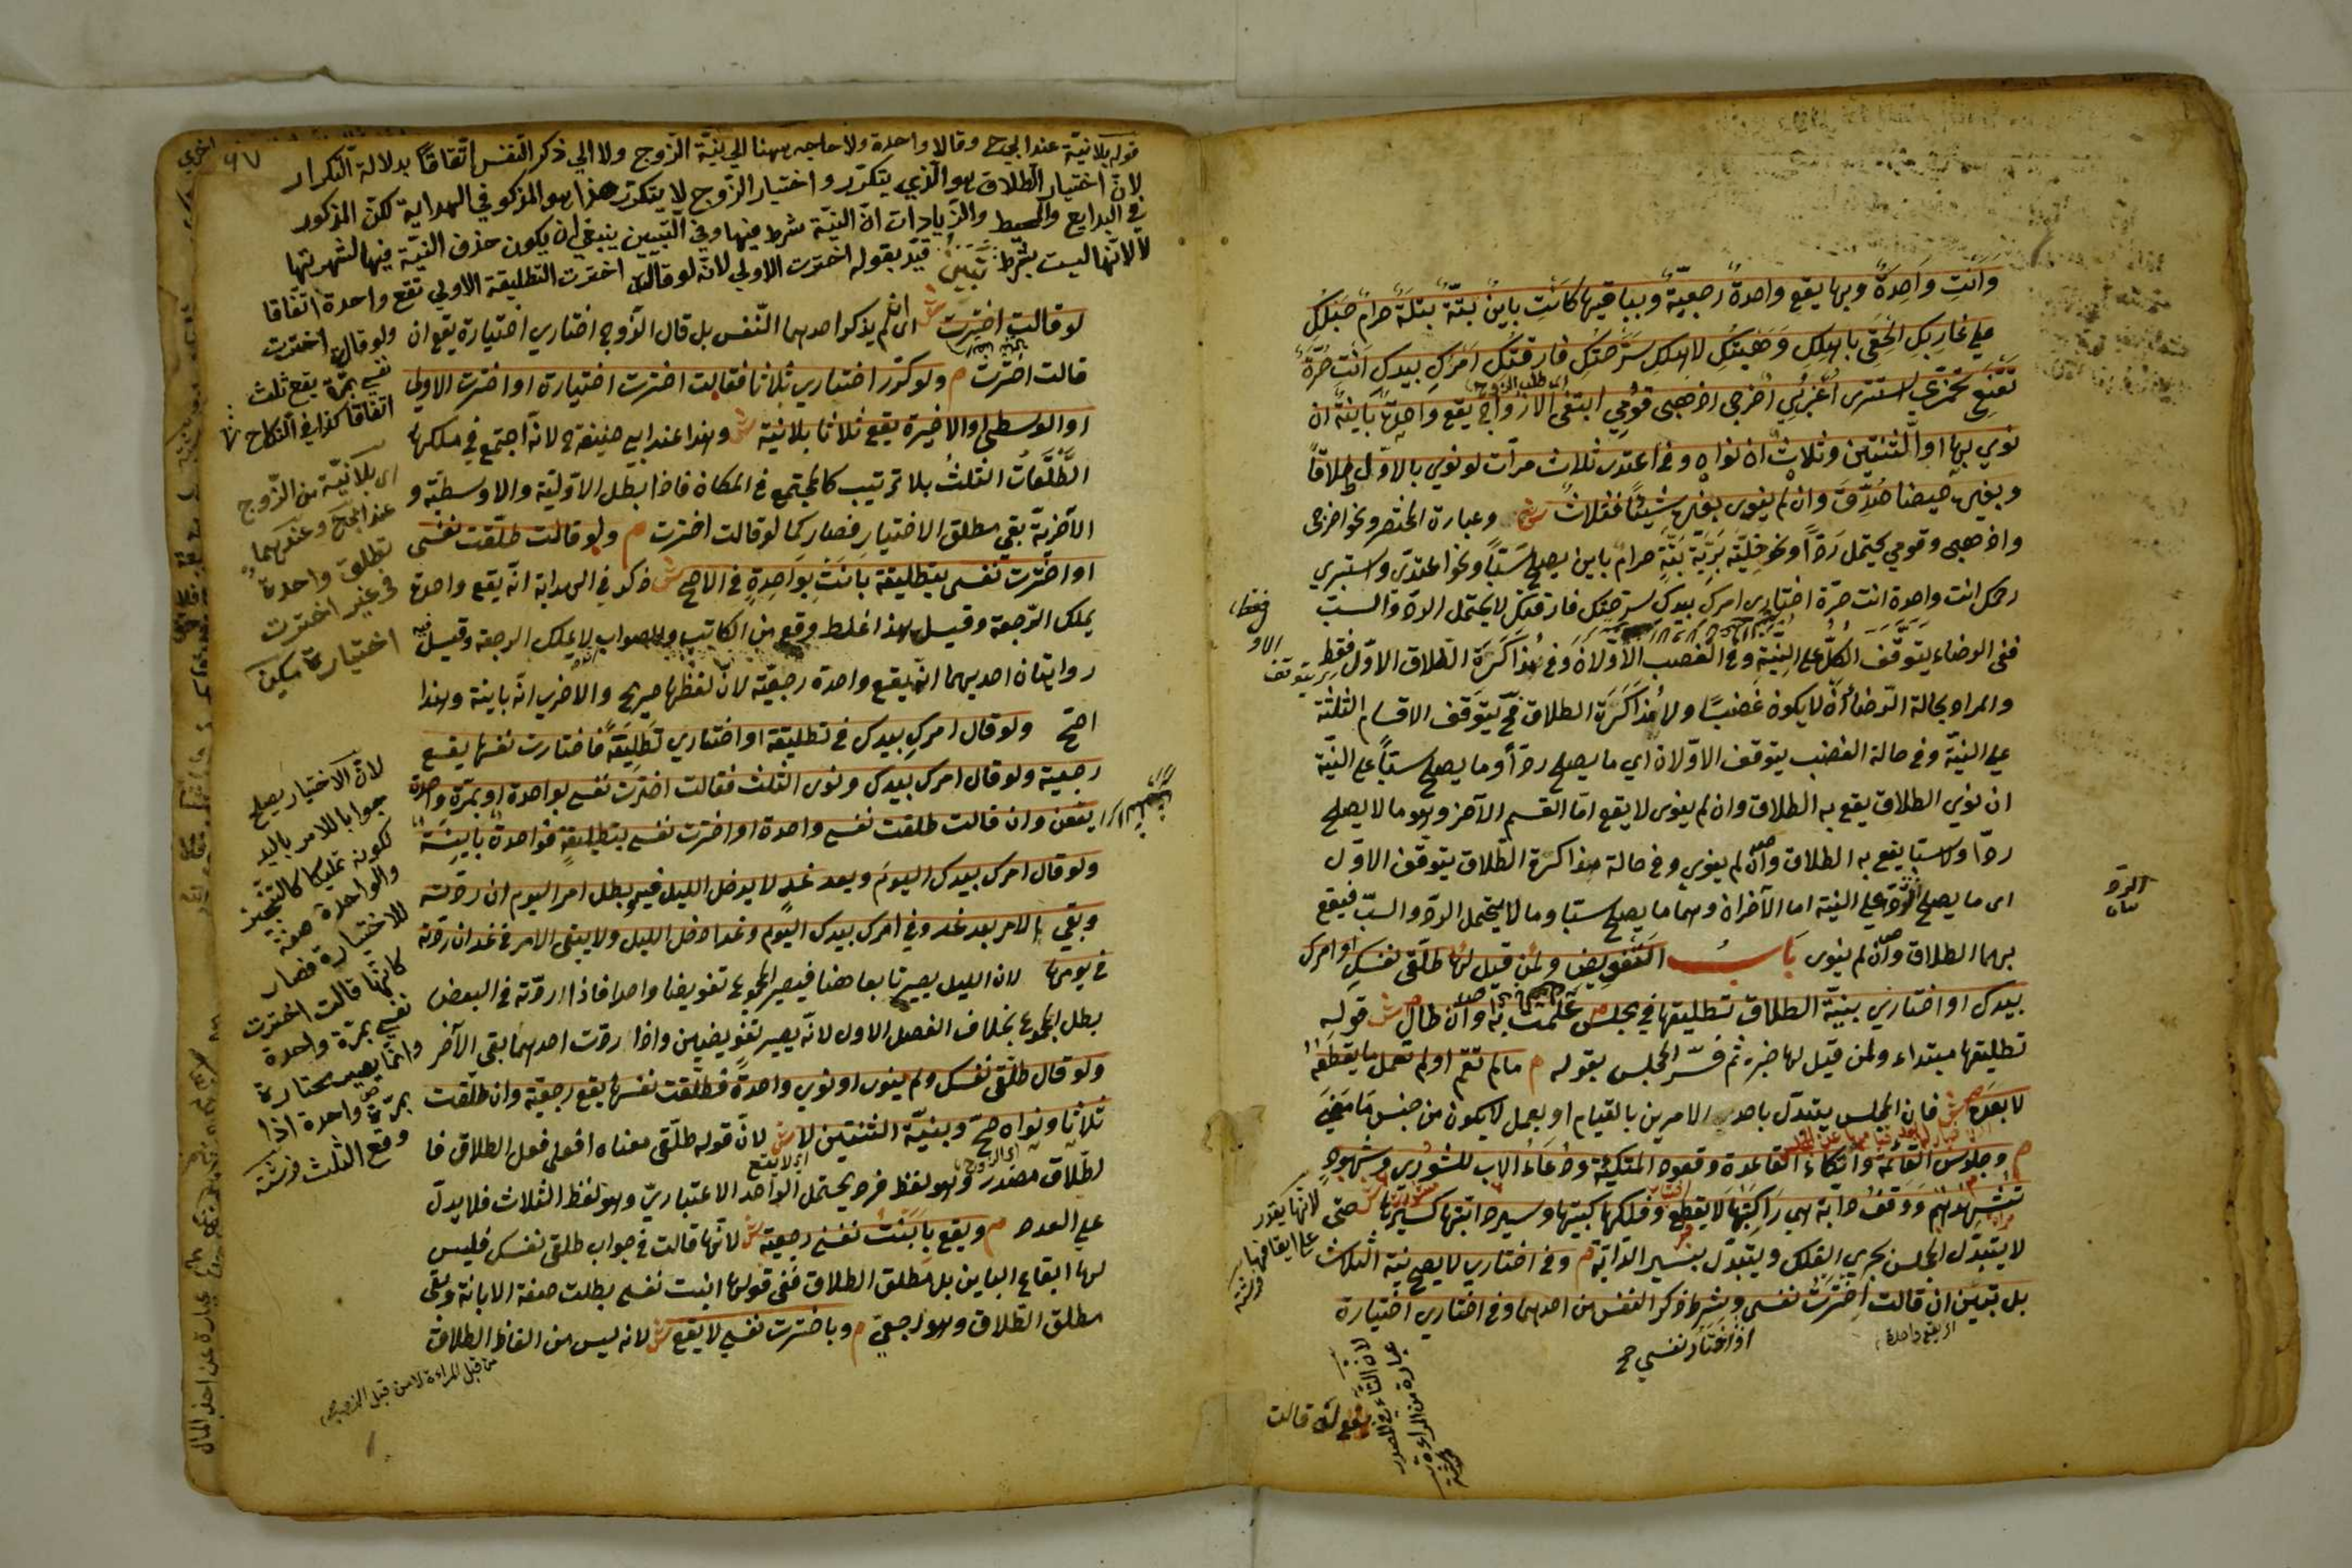 وَأنتِ وَاحِدَةٌ وبها يقع واحدة رجعية وبباقيها كأنتِ باين بتّة بتلة حرام حبلك
على غاربك الحقي باهلك وهبتك لاهلك سرّحتك فارقتك امرك بيدك انت حرّة
تقنعي تخمري استتري اغربي اخرجي اذهبي قومي ابتغي الازواج يقع واحدة باينة ان
نوي بها او الثنتين وثلاث ان نواه وفي اعتدي ثلاث مرات لو نوي بالاول طلاقا
وبغيره حيضا صُدّق وان لم ينوى بغيره شيئا فثلاث ش وعبارة المختصر ونحو اخرجي
واذهبي وقومي يحتمل ردّا ونحو خليّة بريّة بتّة حرام باين يصلح سبّا ونحو اعتدّي واستبري
رحمك انت واحدة انت حرّة اختاري امرك بيدك سرحتك فارقتك لا يحتمل الردّ والسبّ
ففي الرضاء يتوقّف الكلّ على النيّة وفي الغضب الاوّلان وفي مذاكرة الطلاق الاوّل فقط
والمراد بحالة الرضاء ان لا يكون غضبًا ولا مذاكرة الطلاق فح يتوقف الاقسام الثلثة
على النيّة وفي حالة الغضب يتوقف الاوّلان اي ما يصلح ردّا وما يصلح سبّا على النيّة
ان نوي الطلاق يقع به الطلاق وان لم ينوى لا يقع امّا القسم الآخر وهو ما لا يصلح
ردّا ولا سبّا يقع به الطلاق وان لم ينوي وفي حالة مذاكرة الطّلاق يتوقّف الاوّل
اى ما يصلح الردّ على النية اما الآخران وهما ما يصلح سبّا وما لا يحتمل الردّ والسبّ فيقع
بهما الطلاق وان لم ينوى بَابُ التفويض ولمن قيل لها طلّقي نفسك او امرك
بيدك او اختاري بنيّة الطلاق تطليقها في مجلس علمت به وان طال ش قوله
تطليقها مبتداء ولمن قيل لها خبره ثم فسّر المجلس بقوله م مالم تقم او لم تعمل ما يقطعه
لا بعده ش فان المجلس يتبدّل باحد الامرين بالقيام او بعمل لا يكون من جنس ما مضى
م وجلوس القائمة واتكاء القاعدة وقعود المتكئة ودعاء الاب للشوري وشهود
تشهدهم ووقف دابة هي راكبتها لا يقطع وفلكها كبيتها وسير دابتها كسيرها ش حتى
لا يتبدّل المجلس بجري الفلك ويتبدّل بسير الدابّة م وفي اختاري لا يصح نية الثلاث
بل تبين ان قالت اخترت نفسي وشرط ذكر النفس من احدهما وفي اختاري اختيارة
او اختار نفسي صح
يقع لو قالت
قوله بلا نية عند ابي ح وقالا واحدة ولا حاجة ههنا الي نيّة الزوج ولا الي ذكر النفس اتّفاقًا بدلالة التكرار
لانّ اختيار الطلاق هو الّذي يتكرر واختيار الزّوج لا يتكرر هذا هو المذكو في الهداية لكن المذكور
في البدايع والمحيط والزّيادات انّ النيّة شرط فيها وفي التّبيين ينبغي ان يكون حذف النيّة فيها لشهرتها
لا لانّها ليست بشرط تبيين قيّد بقوله اخترت الاولي لانّه لو قالت اخترت التطليقة الاولي تقع واحدة اتّفاقا
لو قالت اخترت ش اى ان لم يذكر احدهما النّفس بل قال الزّوج اختاري اختيارة يقع ان
قالت اخترت م ولو كرّر اختاري ثلاثا فقالت اخترت اختيارة او اخترت الاولي
او الوسطى او الاخيرة يقع ثلاثا بلا نية ش وهذا عند ابي حنيفة لانه اجتمع في ملكها
الطّلقات الثلث بلا ترتيب كالمجتمع في المكان فاذا بطل الاوّليّة والاوسطيّة و
الآخريّة بقي مطلق الاختيار فصار كما لو قالت اخترت م ولو قالت طلّقت نفسي
او اخترت نفسي بتطليقة بانت بواحدة في الاصح ش ذكر في الهداية انّه يقع واحدة
يملك الرّجعة وقيل هذا غلط وقع من الكاتب والصواب لا يملك الرجعة وقيل فيه
روايتان احديهما انه يقع واحدة رجعيّة لان لفظها صريح والاخري انّه باينة وهذا
اصح ولو قال امرك بيدك في تطليقة او اختاري تطليقة فاختارت نفسها يقع
رجعية ولو قال امرك بيدك ونوى الثلث فقالت اخترت نفسي بواحدة او بمرة واحدة
يقعن وان قالت طلقت نفسي واحدة او اخترت نفسي بتطليقة فواحدة باينة
ولو قال امرك بيدك اليوم وبعد غد لا يدخل الليل فيه وبطل امر اليوم ان ردّته
وبقي الامر بعد غد وفي امرك بيدك اليوم وغدا دخل الليل ولا يبقى الامر في غد ان ردّته
في يومها لان الليل يصير تابعا هنا فيصير المجموع تفويضا واحدا فاذا ردّته في البعض
بطل المجموع بخلاف الفصل الاول لانّه يصير تفويضين واذا ردّت احدهما بقي الآخر
ولو قال طلّقي نفسك ولم ينوى او نوي واحدة فطلّقت نفسها يقع رجعيّة وان طلّقت
ثلاثا ونواه صحّ وبنيّة الثنتين لا ش لانّ قوله طلّقي معناه افعلي فعل الطلاق فا
لطّلاق مصدر وهو لفظ فرد يحتمل الواحد الاعتباريّ وهو لفظ الثلاث فلا يدلّ
على العدد م ويقع بابنت نفسي رجعية ش لانّها قالت في جواب طلقي نفسك فليس
لها ايقاع الباين بل مطلق الطلاق ففي قولها ابنت نفسي بطلت صفة الابانة وبقي
مطلق الطّلاق وهو رجعيّ م وباخترت نفسي لا يقع ش لانه ليس من الفاظ الطلاق
ولو قالت اخترت
نفسي بمرّة يقع ثلث
اتفاقا كذا في النكاح
اى بلا نيّة من الزّوج
عند ابي ح وعندهما
تطلق واحدة
في غير اخترت
اختيارة مكين
لانّ الاختيار يصلح
جوابا للامر باليد
لكونه تمليكا كالتخيير
والواحدة صفة
للاختيارة فصار
كانّها قالت اخترت
نفسي بمرّة واحدة
وانما يصير مختارة
بمرّة واحدة اذا
وقع الثلث فرشته
من قبل المراءة لا من قبل